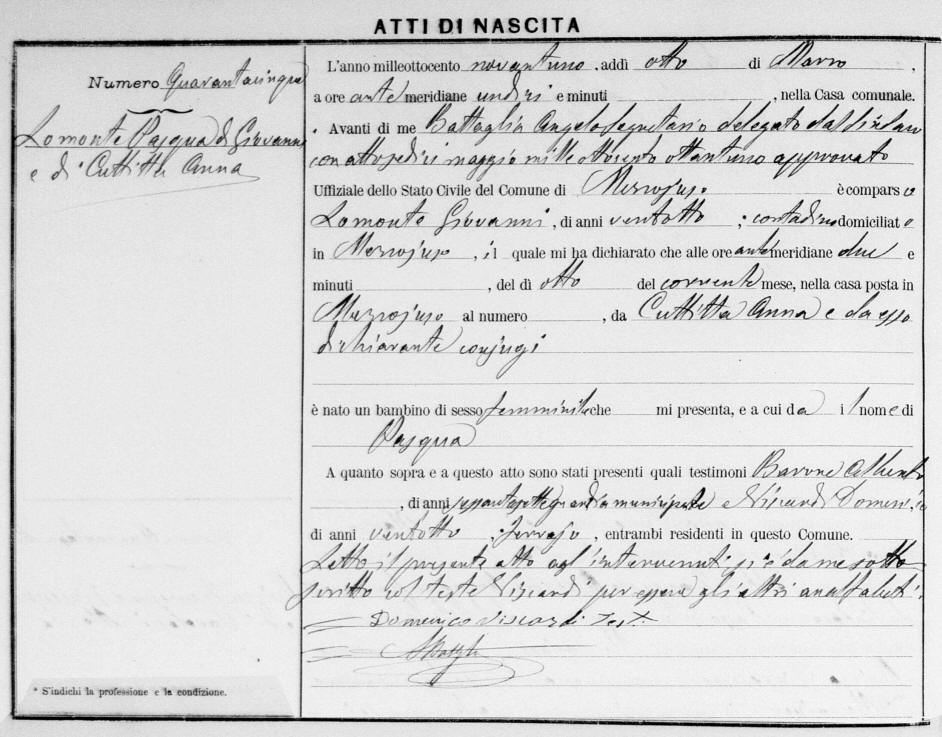 ATTI DI NASCITA
Numero Quarantacinque
Lomonte Pasqua di Giovanni
e di Cuttitta Anna
* S'indichi la professione e la condizione.
L'anno milleottocento novantuno, addì otto di Marzo,
a ore ante meridiane undici e minuti , nella Casa comunale.
Avanti di me Battaglia Angelo segretario delegato dal Sindaco
con atto sedici maggio mille ottocento ottantuno approvato
Uffiziale dello Stato Civile del Comune di Mezzojuso è comparso
Lomonte Giovanni, di anni ventotto, contadino domiciliato
in Mezzojuso, il quale mi ha dichiarato che alle ore ante meridiane due e
minuti , del dì otto del corrente mese, nella casa posta in
Mezzojuso al numero , da Cuttitta Anna e da esso
dichiarante conjugi
è nato un bambino di sesso femminile che mi presenta, e a cui da il nome di
Pasqua
A quanto sopra e a questo atto sono stati presenti quali testimoni Barone Alberto
, di anni sessantasette guardia municipale e Viscardi Domenico
di anni ventotto , entrambi residenti in questo Comune.
Letto il presente atto agl'intervenuti, si è da me sotto
scritto col teste Viscardi per essere gli altri analfabeti.
Domenico Viscardi Test.